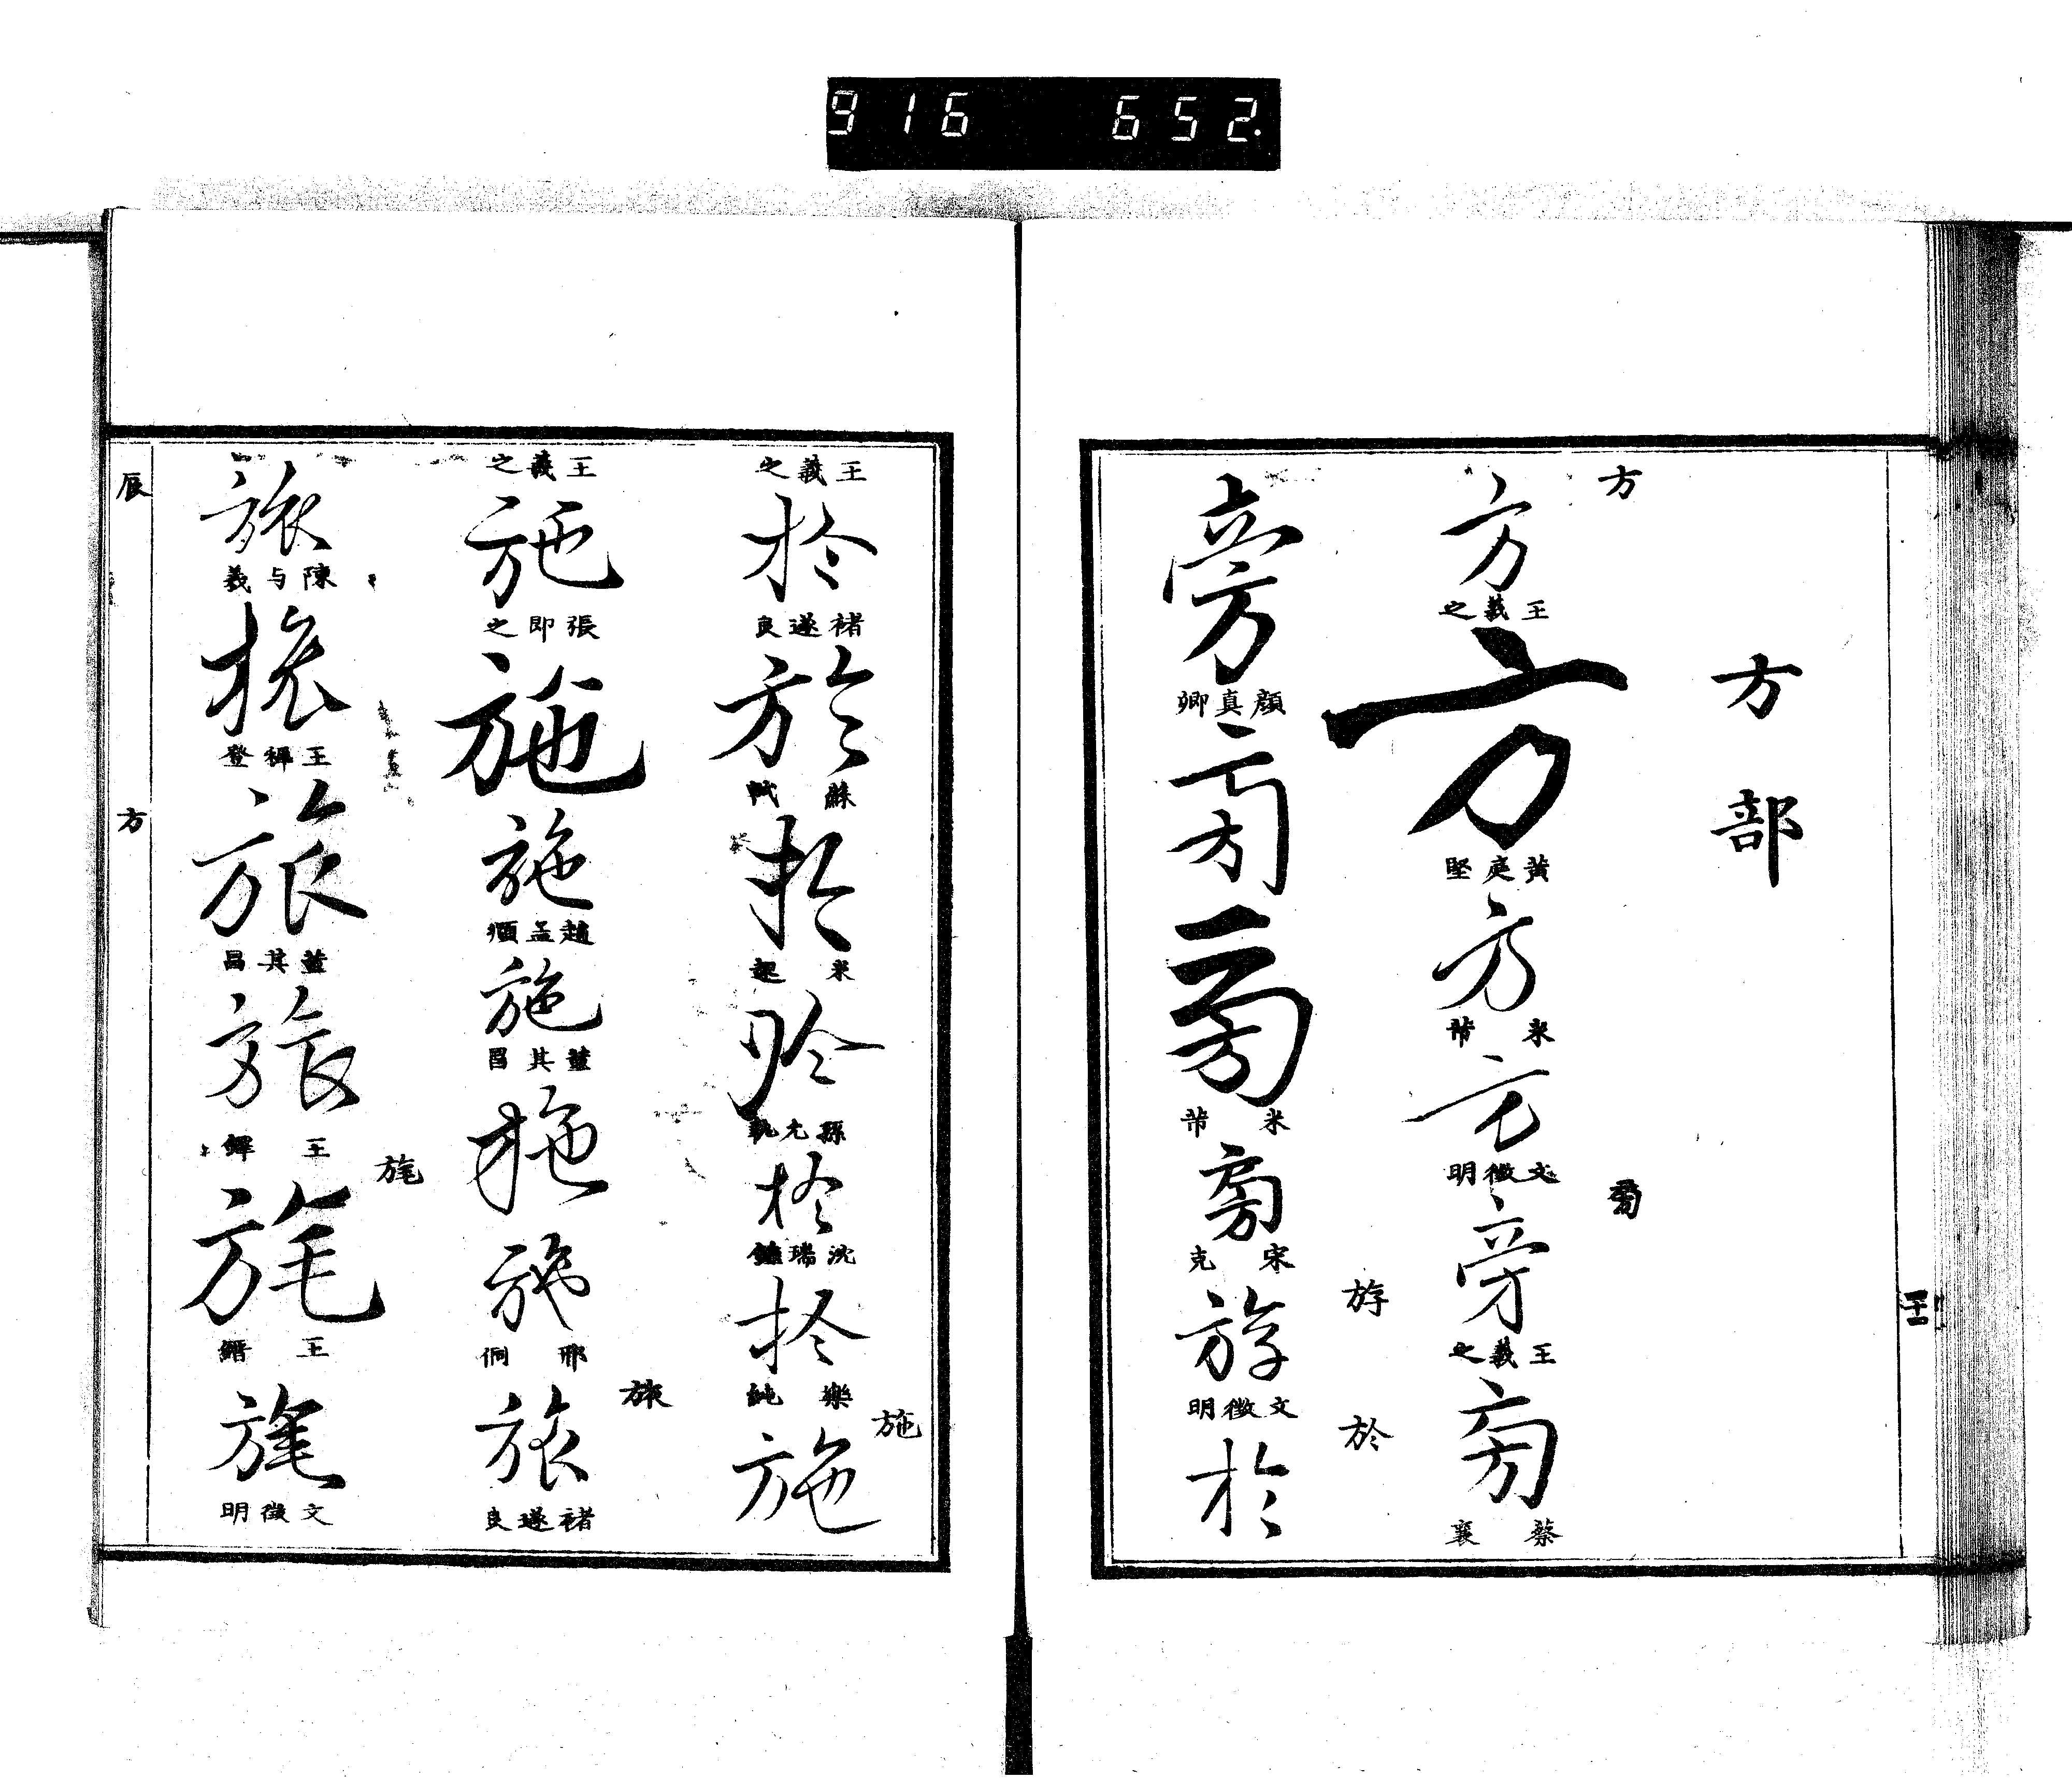 916 652.
方部
方
方
王羲之
方
黄庭堅
方
米芾
方
文徵明
旁
旁
王羲之
旁
蔡襄
旁
顔真卿
旁
旁
米芾
旁
宋克
斿
斿
文徵明
於
於
王羲之
於
褚遂良
於
蘇軾
於
米
於
於
沈瑞
於
樂純
施
施
王羲之
施
張即之
施
趙孟頫
施
董其昌
施
施
邢侗
旅
旅
褚遂良
旅
陳与義
旅
王穉登
旅
董其昌
旅
王鐸
旄
旄
王
旄
文徵明
辰
方